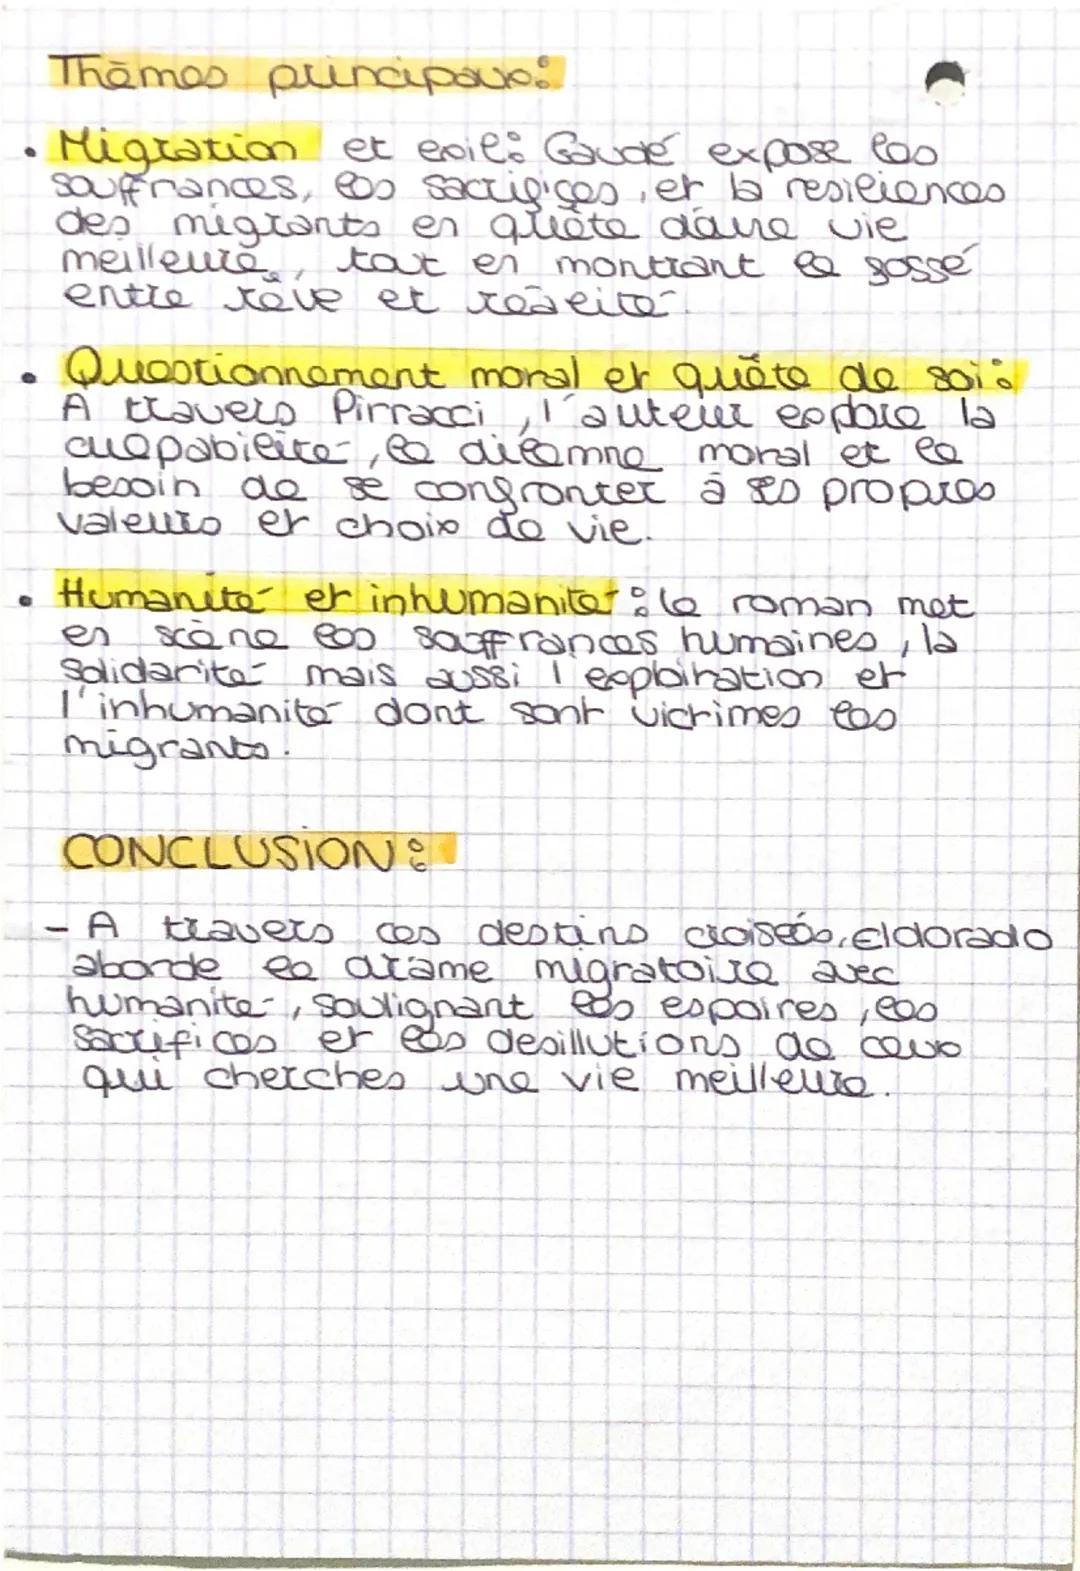 Thèmes principaux:
• Migration et exil: Gaudé expose les
souffrances, les sacrifices, et la resiliences
des migrants en quête d'une vie
meilleure, tout en montrant le fossé
entre rêve et réalité.
• Questionnement moral et quête de soi:
A travers Pirracci, l'auteur explore la
culpabilité, le dilemne moral et le
besoin de se confronter à ses propres
valeurs et choix de vie.
• Humanité et inhumanité: le roman met
en scène les souffrances humaines, la
solidarité mais aussi l'exploitation et
l'inhumanité dont sont victimes les
migrants.
CONCLUSION:
- A travers ces destins croisés, Eldorado
aborde le drame migratoire avec
humanité, soulignant les espoires, les
sacrifices et les desillutions de ceux
qui cherches une vie meilleure.